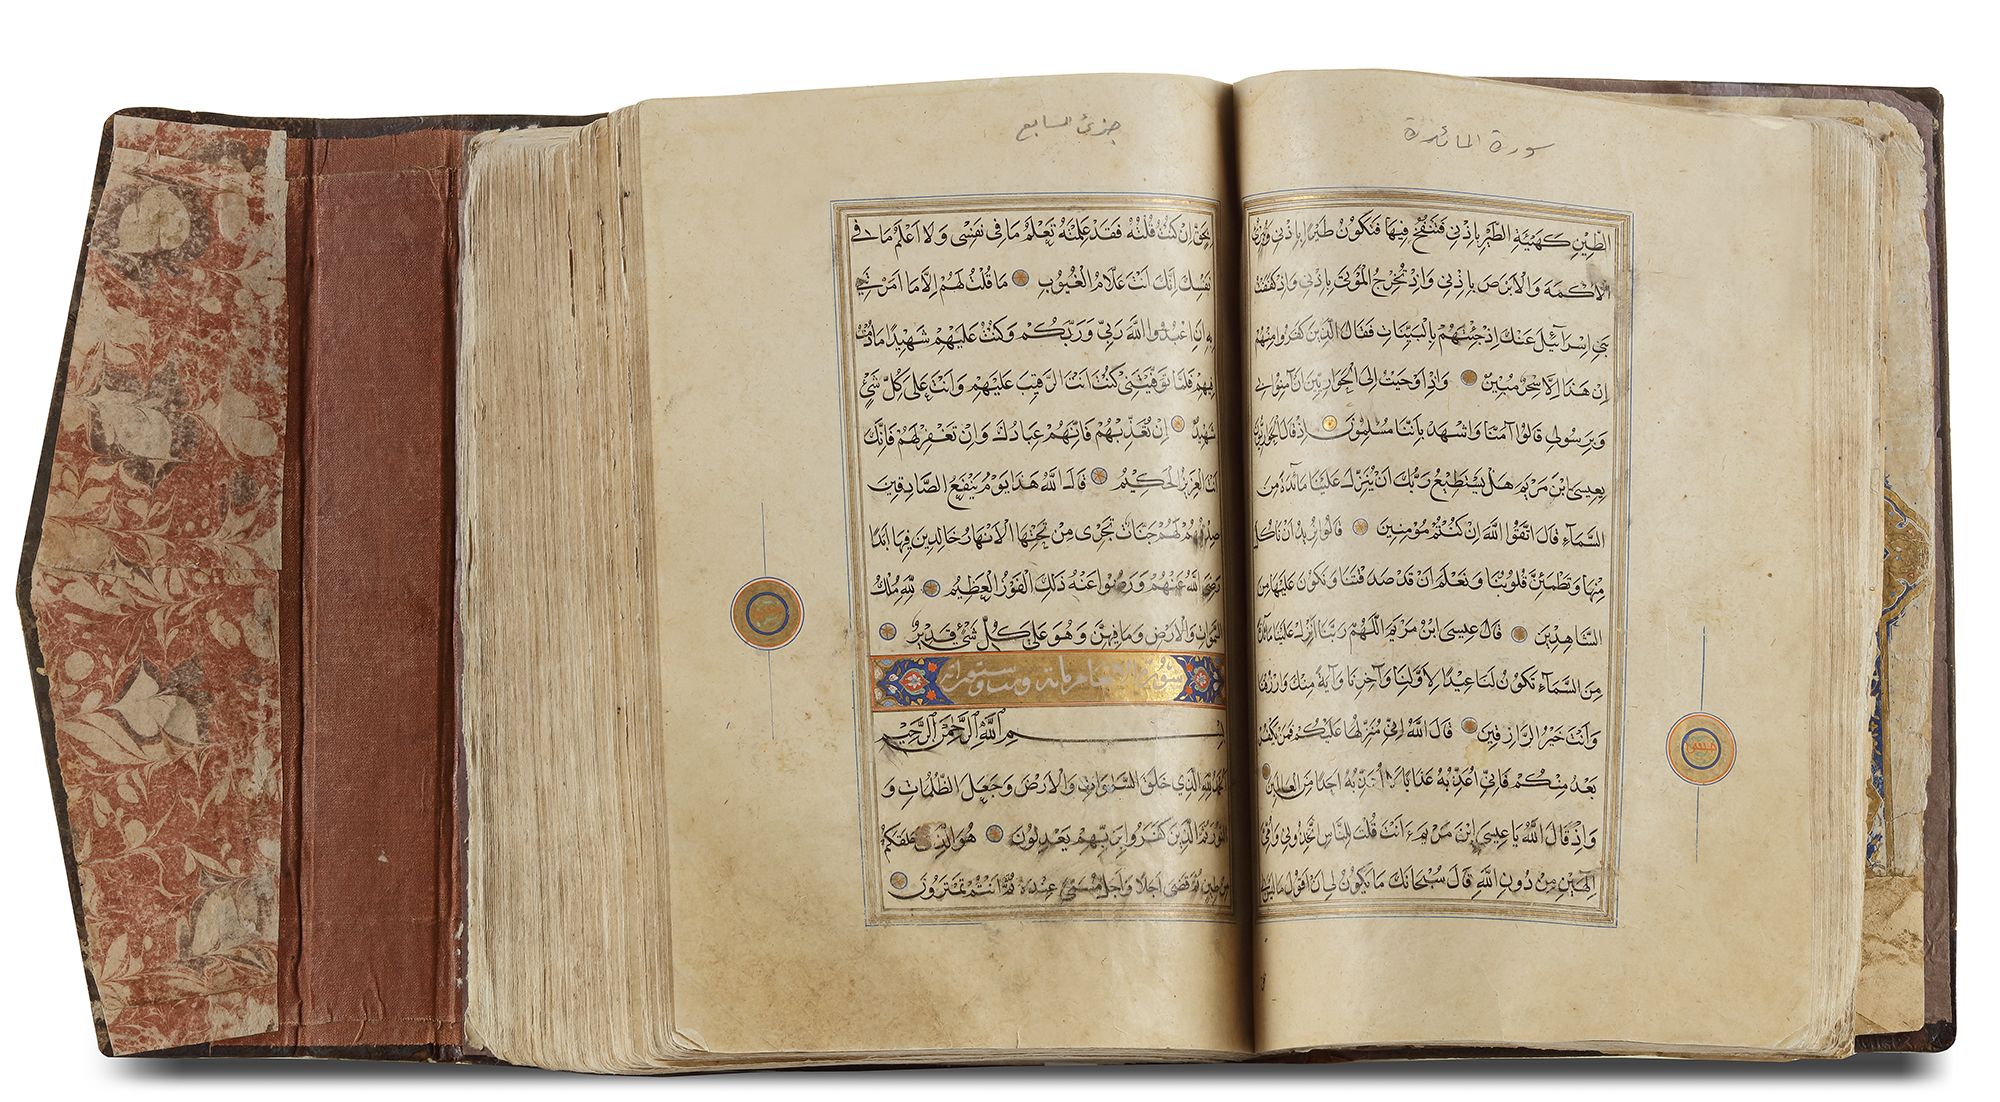 سورة المائدة
الطِّينِ كَهَيْئَةِ الطَّيْرِ بِإِذْنِي فَتَنْفُخُ فِيهَا فَتَكُونُ طَيْرًا بِإِذْنِي وَتُبْرِئُ
الْأَكْمَهَ وَالْأَبْرَصَ بِإِذْنِي وَإِذْ تُخْرِجُ الْمَوْتَى بِإِذْنِي وَإِذْ كَفَفْتُ
بَنِي إِسْرَآئِيلَ عَنْكَ إِذْ جِئْتَهُمْ بِالْبَيِّنَاتِ فَقَالَ الَّذِينَ كَفَرُوا مِنْهُمْ
إِنْ هَذَا إِلَّا سِحْرٌ مُبِينٌ وَإِذْ أَوْحَيْتُ إِلَى الْحَوَارِيِّينَ أَنْ آمِنُوا بِي
وَبِرَسُولِي قَالُوا آمَنَّا وَاشْهَدْ بِأَنَّنَا مُسْلِمُونَ إِذْ قَالَ الْحَوَارِيُّونَ
يَعِيسَى ابْنَ مَرْيَمَ هَلْ يَسْتَطِيعُ رَبُّكَ أَنْ يُنَزِّلَ عَلَيْنَا مَآئِدَةً مِنَ
السَّمَآءِ قَالَ اتَّقُوا اللَّهَ إِنْ كُنْتُمْ مُؤْمِنِينَ قَالُوا نُرِيدُ أَنْ نَأْكُلَ
مِنْهَا وَتَطْمَئِنَّ قُلُوبُنَا وَنَعْلَمَ أَنْ قَدْ صَدَقْتَنَا وَنَكُونَ عَلَيْهَا مِنَ
الشَّاهِدِينَ قَالَ عِيسَى ابْنُ مَرْيَمَ اللَّهُمَّ رَبَّنَا أَنْزِلْ عَلَيْنَا مَآئِدَةً
مِنَ السَّمَآءِ تَكُونُ لَنَا عِيدًا لِأَوَّلِنَا وَآخِرِنَا وَآيَةً مِنْكَ وَارْزُقْنَا
وَأَنْتَ خَيْرُ الرَّازِقِينَ قَالَ اللَّهُ إِنِّي مُنَزِّلُهَا عَلَيْكُمْ فَمَنْ يَكْفُرْ
بَعْدُ مِنْكُمْ فَإِنِّي أُعَذِّبُهُ عَذَابًا لَا أُعَذِّبُهُ أَحَدًا مِنَ الْعَالَمِينَ
وَإِذْ قَالَ اللَّهُ يَا عِيسَى ابْنَ مَرْيَمَ ءَأَنْتَ قُلْتَ لِلنَّاسِ اتَّخِذُونِي وَأُمِّيَ
إِلَهَيْنِ مِنْ دُونِ اللَّهِ قَالَ سُبْحَانَكَ مَا يَكُونُ لِي أَنْ أَقُولَ مَا لَيْسَ لِي
خمس
جزئ السابع
بِحَقٍّ إِنْ كُنْتُ قُلْتُهُ فَقَدْ عَلِمْتَهُ تَعْلَمُ مَا فِي نَفْسِي وَلَا أَعْلَمُ مَا فِي
نَفْسِكَ إِنَّكَ أَنْتَ عَلَّامُ الْغُيُوبِ مَا قُلْتُ لَهُمْ إِلَّا مَا أَمَرْتَنِي
بِهِ أَنِ اعْبُدُوا اللَّهَ رَبِّي وَرَبَّكُمْ وَكُنْتُ عَلَيْهِمْ شَهِيدًا مَا دُمْتُ
فِيهِمْ فَلَمَّا تَوَفَّيْتَنِي كُنْتَ أَنْتَ الرَّقِيبَ عَلَيْهِمْ وَأَنْتَ عَلَى كُلِّ شَيْءٍ
شَهِيدٌ إِنْ تُعَذِّبْهُمْ فَإِنَّهُمْ عِبَادُكَ وَإِنْ تَغْفِرْ لَهُمْ فَإِنَّكَ
أَنْتَ الْعَزِيزُ الْحَكِيمُ قَالَ اللَّهُ هَذَا يَوْمُ يَنْفَعُ الصَّادِقِينَ
صِدْقُهُمْ لَهُمْ جَنَّاتٌ تَجْرِي مِنْ تَحْتِهَا الْأَنْهَارُ خَالِدِينَ فِيهَا أَبَدًا
رَضِيَ اللَّهُ عَنْهُمْ وَرَضُوا عَنْهُ ذَلِكَ الْفَوْزُ الْعَظِيمُ لِلَّهِ مُلْكُ
السَّمَوَاتِ وَالْأَرْضِ وَمَا فِيهِنَّ وَهُوَ عَلَى كُلِّ شَيْءٍ قَدِيرٌ
سورة الانعام مائة وست وستون آية
بِسْمِ اللَّهِ الرَّحْمَنِ الرَّحِيمِ
الْحَمْدُ لِلَّهِ الَّذِي خَلَقَ السَّمَوَاتِ وَالْأَرْضَ وَجَعَلَ الظُّلُمَاتِ وَ
النُّورَ ثُمَّ الَّذِينَ كَفَرُوا بِرَبِّهِمْ يَعْدِلُونَ هُوَ الَّذِي خَلَقَكُمْ
مِنْ طِينٍ ثُمَّ قَضَى أَجَلًا وَأَجَلٌ مُسَمًّى عِنْدَهُ ثُمَّ أَنْتُمْ تَمْتَرُونَ